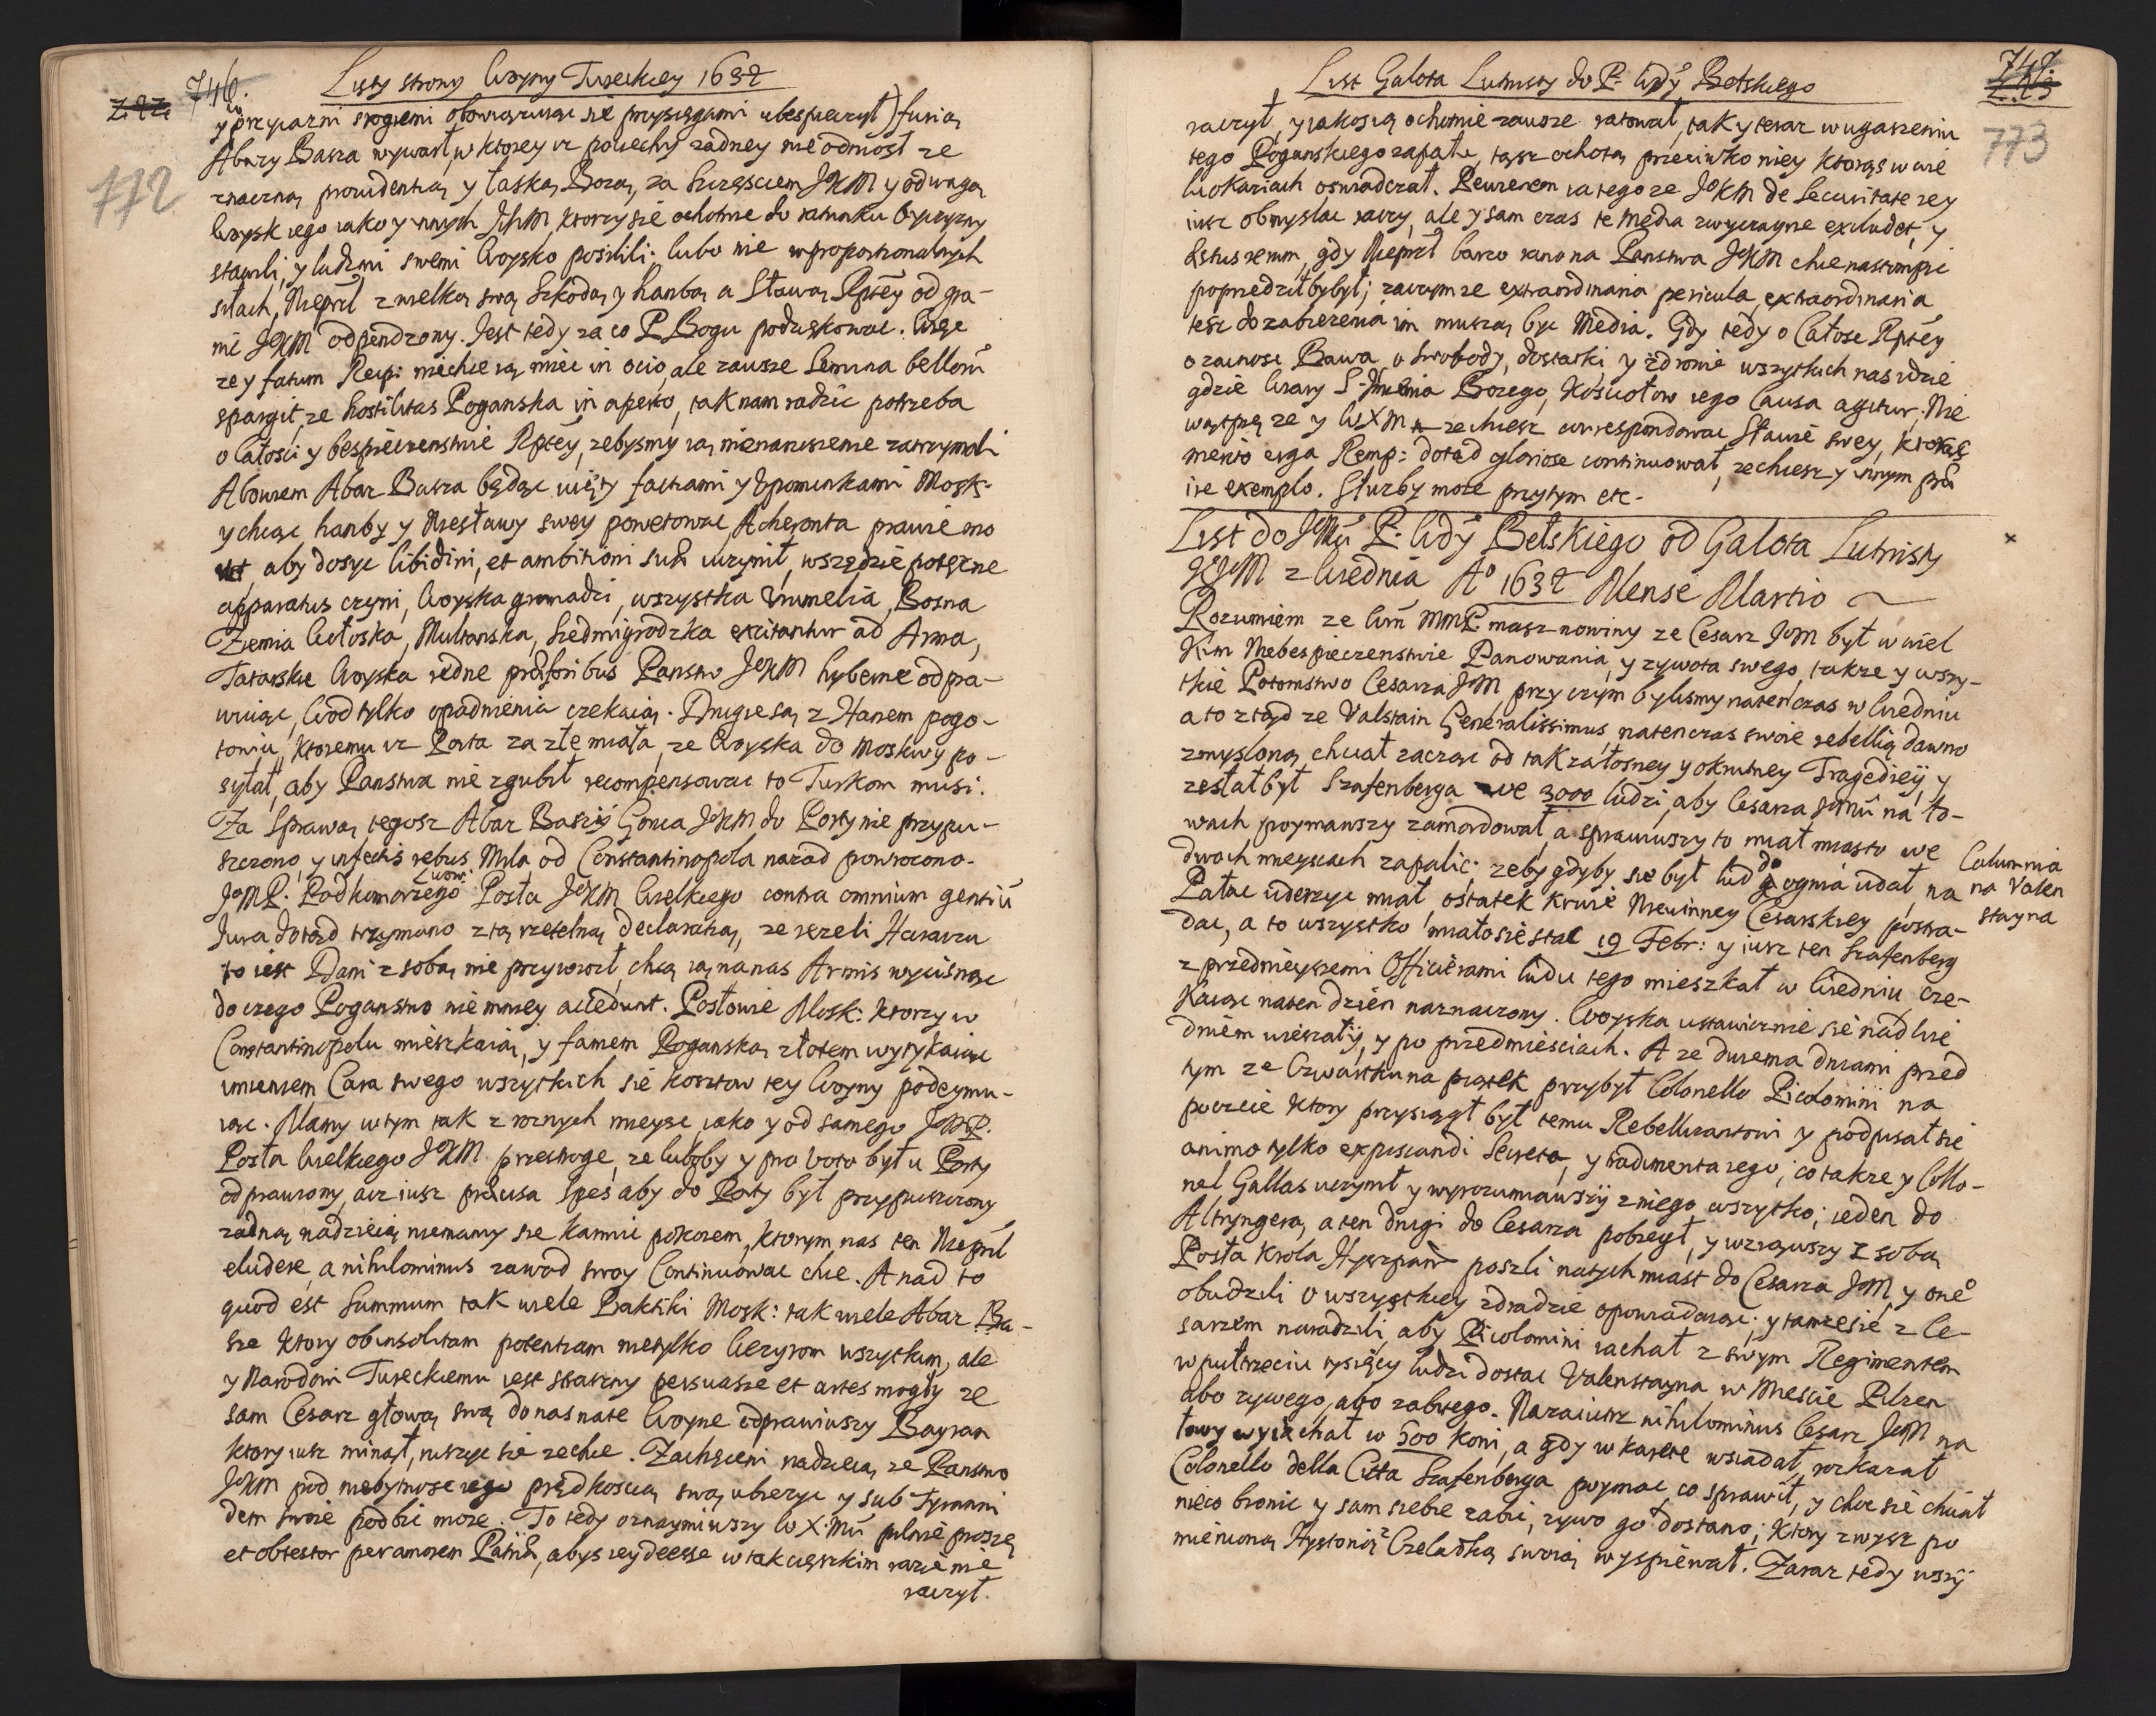 746.
772
Listy strony Woyny Tureckiey 1634
y przyiazni srogiemi obowiązuiąc się przysięgami ubespieczył) furią
Abazy Basza wywarł, w ktorey iż pociechy zadney nie odniosł ze
znaczną prouidentią y łaską Bozą, za szczęsciem JKM y odwagą
woyskiego iako y innych JchM, ktorzy się ochotnie do ratunku Oyczyzny
stawili, y ludzmi swemi Woysko posilili: lubo nie w proportionalnych
siłach, Nieprzl z wielką swą szkodą y hanbą a sławą Rptey od gra-
nic JKM odpendzony. Jest tedy za co P. Bogu podziękowac. Więc
ze y fatum Reip: niechce ią miec in ocio, ale zawsze semina belloru
spargit, ze hostilitas Poganska in aperto, tak nam radzic potrzeba
o całosci y bespieczenstwie Rptey, zebysmy ią nienaruszenie zatrzymali
Abowiem Abaz Basza będąc uięty factiami y Upominkami Mosk:
y chcąc hanby y Niesławy swey powetowac, Acheronta prawie mo
uet, aby dosyc libidini, et ambitioni suæ uczynił, wszędzie potęzne
apparatus czyni, Woyska gromadzi, wszystka Rumelia, Bosna
Ziemia Wołoska, Multanska, Siedmigrodzka excitantur ad Arma,
Tatarskie Woyska iedne præ foribus Panstw JKM hyberne odpra-
wuiąc, Wod tylko opadnienia czekaią. Drugie są z Hanem pogo-
towiu, ktoremu iż Porta za złe miała, ze Woyska do Moskwy po-
syłał, aby Panstwa nie zgubił recompensowac to Turkom musi.
Za sprawą tegosz Abaz Baszy Gonca JKM do Porty nie przypu-
szczono, y infectis rebus Mila od Constantinopola nazad powrocono.
JMP. Podkomorzego Lwow: Posła JKM Wielkiego contra omnium gentiu
Jura dotąd trzymano z tą rzetelną declaratią, ze iezeli Haraczu
to iest Dani z sobą nie przywiozł, chcą ią na nas Armis wycisnąc
do czego Poganstwo nie mniey accedunt. Posłowie Mosk: ktorzy w
Constantinopolu mieszkaią, y famem Poganską złotem wytykaiąc
imieniem Cara swego wszytkich się kosztow tey Woyny podeymu-
iąc. Mamy w tym tak z roznych mieysc, iako y od samego JMP.
Posła Wielkiego JKM przestroge, ze lubby y pro voto był u Porty
odprawiony, acz iusz præcisa spes aby do Porty był przypuszczony
zadną nadzieią niemamy sie karmic pokoiem, ktorym nas ten Nieprzl
eludere, a nihilominus zawod swoy Continuowac chce. A nad to
quod est summum tak wiele Praktiki Mosk: tak wiele Abaz Ba-
sze ktory ob insolitam potentiam nietylko Wezyrom wszytkim, ale
y Narodowi Tureckiemu iest straszny persuasie et artes mogły ze
sam Cesarz głową swą do nas na te Woyne odprawiwszy Bayran
ktory iusz minął, ruszyc sie zechce. Zachęceni nadzieią ze Panstwo
JKM pod niebytnosc iego prędkoscią swą ubiezyc y sub Tyranni
dem swoie podbic moze. To tedy oznaymiwszy WX.Mci pilnie proszę
et obtestor per amorem Patriæ, abys iey deesse w tak cięszkim razie nie
raczył.
747
773
List Galota Lutnisty do P: Wdy Bełskiego
raczył, y iakos ią ochotnie zawsze ratował, tak y teraz w ugaszeniu
tego Poganskiego zapału, tąsz ochotą przeciwko niey ktorąs w wie
lu okaziach oswiadczał. Pewienem ia tego ze JKM de securitate iey
iusz obmyslac raczy, ale y sam czas te media zwyczayne excludet, y
Æstus rerum, gdy Nieprzl barzo rano na Panstwa JKM chce nastompic
poprzedziłby był; zaczym ze extraordinaria pericula, extraordinaria
tesz do zabiezenia im muszą byc Media. Gdy tedy o Całosc Rptey
o zacnosc Prawa, o swobody, dostatki, y zdrowie wszytkich nas idzie
gdzie Wiary S. Imienia Bozego, Kosciołow iego Causa agitur. Nie
wątpię ze y WXM zechcesz correspondowac Sławie swey, ktorąs
merito erga Remp: dotąd gloriose continuował, zechcesz y innym præ
ire exemplo. Słuzby moie przytym etc.
List do JMci P. Wdy Bełskiego od Galota Lutnisty
JKM z Wiednia Ao 1634 Mense Martio
Rozumiem ze Wm MMP. masz nowiny ze Cesarz JM był w wiel
kim Niebespieczenstwie Panowania, y zywota swego, takze y wszy-
tkie Potomstwo Cesarza JM przy czym bylismy natenczas w Wiedniu
a to ztąd ze Valstain Generalissimus natenczas swoie rebellią dawno
zmysloną chciał zacząc od tak załosney y okrutney Tragediey, y
zesłał był Szafenberga we 3000 ludzi, aby Cesarza JMci na ło-
wach poymawszy zamordował, a sprawiwszy to miał miasto we
dwoch mieyscach zapalic; zeby gdyby się był lud do ognia udał, na
Pałac uderzyc miał ostatek krwie Niewinney Cesarskiey postra-
dac, a to wszystko miało się stac 19 Febr: y iusz ten Szafenberg
z przednieyszemi Officierami ludu tego mieszkał w Wiedniu cze-
kaiąc na ten dzien naznaczony. Woyska ustawicznie się nad Wie
dniem wieszały, y po przedmiesciach. A ze dwiema dniami przed
tym ze Czwartku na piątek przybył Colonello Picolomini na
poczcie ktory przysiągł był temu Rebellizantowi y podpisał się
animo tylko expiscandi Secreta, y tradimenta iego, co takze y Collo-
nel Gallas uczynił y wyrozumiawszy z niego wszytko; ieden do
Altryngera, a ten drugi do Cesarza pobiegł, y wziąwszy z sobą
Posła Krola Hyszpans poszli natychmiast do Cesarza JM, y one
obudzili o wszystkiey zdradzie opowiadaiąc; y tamze się z Ce-
sarzem naradzili, aby Picolomini iachał z swym Regimentem
w puł trzeciu tysięcy ludzi dostac Valenstayna w Miescie Pilzen
abo zywego, abo zabitego. Nazaiutrz nihilominus Cesarz JM na
łowy wyiechał w 500 koni, a gdy w karetę wsiadał, rozkazał
Colonello della Citta Szafenberga poymac, co sprawił, y choc się chciał
nieco bronic y sam siebie zabic, zywo go dostano; ktory zwysz po
mienioną Hystorią z Czeladką swoią wyspiewał. Zaraz tedy wszy
Calumnia
na Valen
stayna